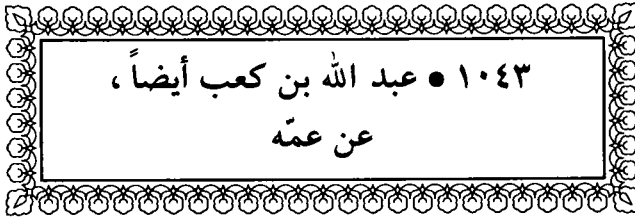 ١٠٤٣ • عبد الله بن كعب أيضاً ،
عن عمّه